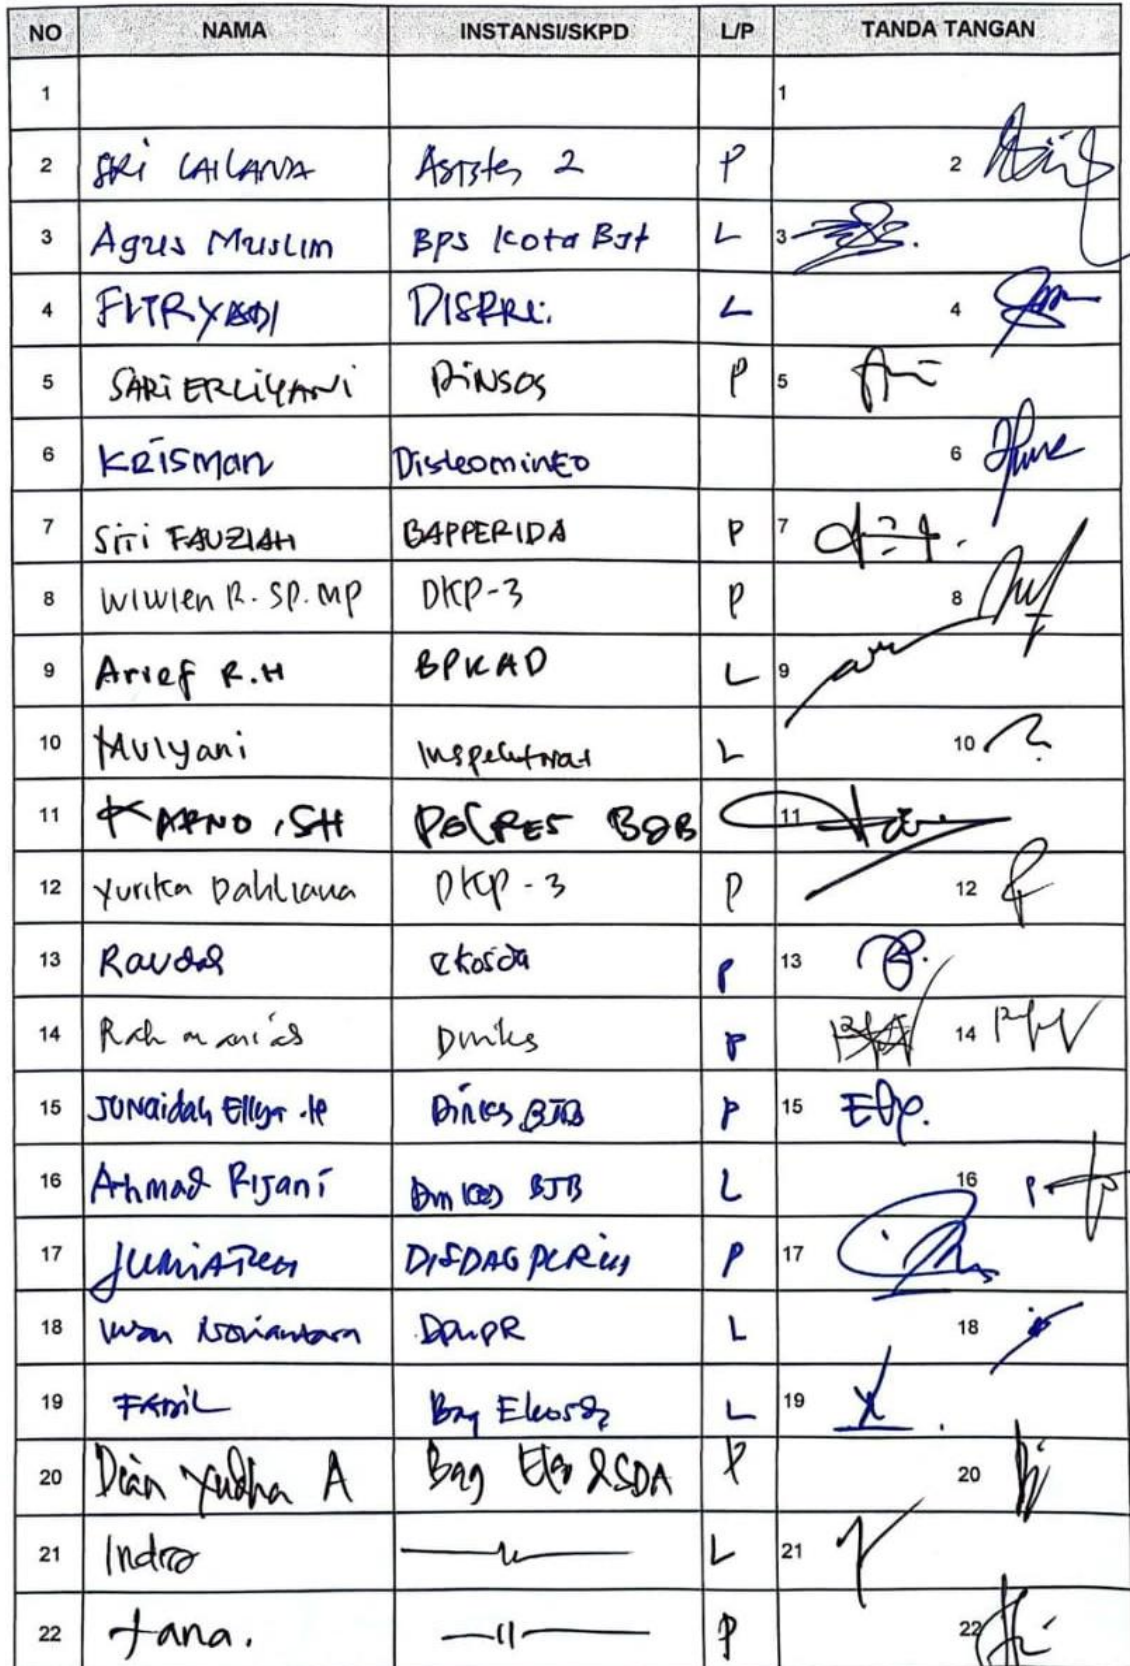 NO NAMA INSTANSI/SKPD L/P TANDA TANGAN
1 1
2 SRI LAILANA Asisten 2 P 2
3 Agus Muslim BPS Kota Bjb L 3
4 FITRYADI L 4
5 SARI ERLIYANI DINSOS P 5
6 KRISMAN Diskominfo 6
7 SITI FAUZIAH BAPPERIDA P 7
8 WIWIEN R. SP. MP DKP-3 P 8
9 Arief R.H BPKAD L 9
10 Mulyani Inspektorat L 10
11 KARNO, SH POLRES BJB 11
12 Yurika Dahliana DKP-3 P 12
13 Raudah ekosda P 13
14 Dinkes P 14
15 JUNaidah Ellya Dinkes BJB P 15
16 Ahmad Rijani Dinkes BJB L 16
17 DISDAGPERIN P 17
18 Iwan Noviantara DPUPR L 18
19 FADIL Bag Ekosda L 19
20 Dian Yudha A Bag Eko & SDA P 20
21 Indra L 21
22 Tana. —11— P 22